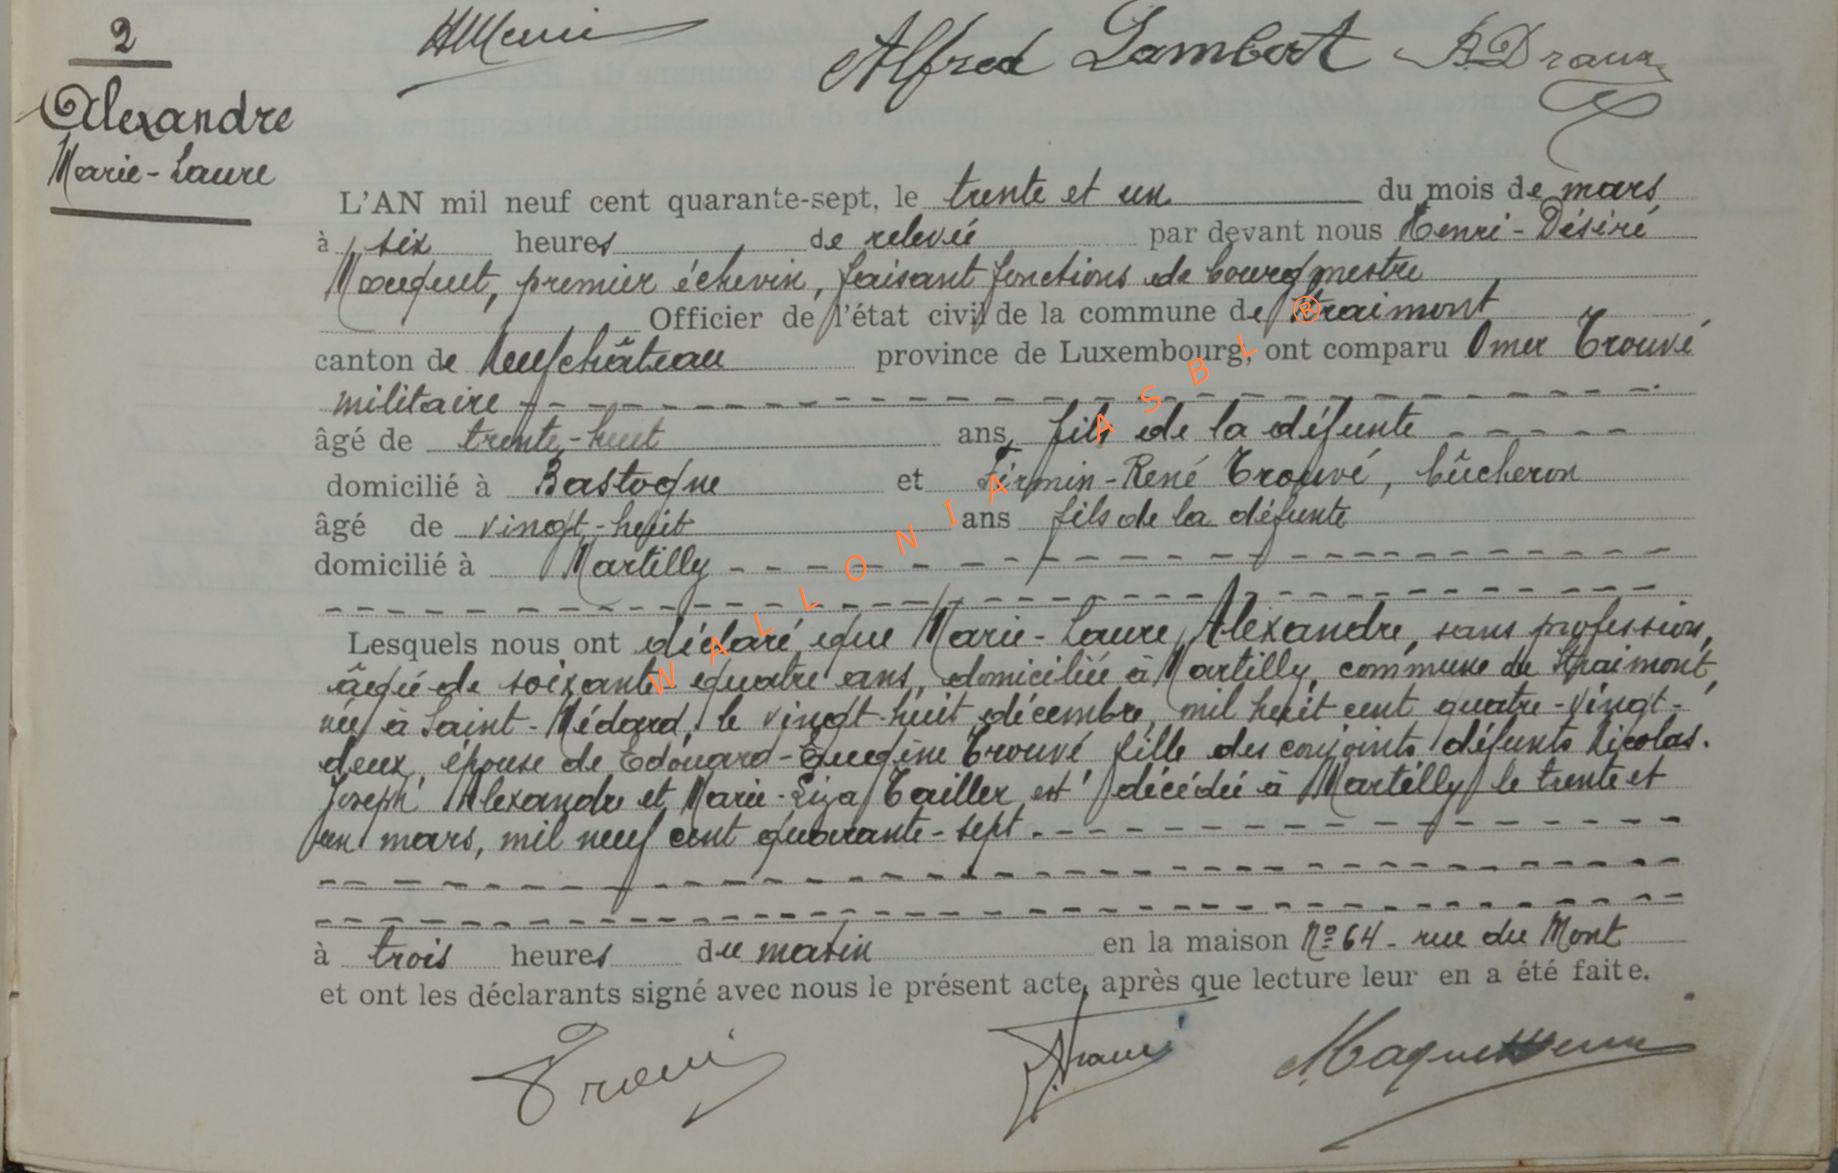 2
Alfred Lambert
Alexandre
Marie-Laure
L'AN mil neuf cent quarante-sept, le trente et un du mois de mars
à six heures de relevée par devant nous Henri-Désiré
Maquet, premier échevin, faisant fonctions de bourgmestre
Officier de l'état civil de la commune de Straimont
canton de Neufchâteau province de Luxembourg, ont comparu Omer Trouvé
militaire
âgé de trente-huit ans, fils de la défunte
domicilié à Bastogne et Firmin-René Trouvé, bûcheron
âgé de vingt-huit ans fils de la défunte
domicilié à Martilly
Lesquels nous ont déclaré que Marie-Laure Alexandre, sans profession,
âgée de soixante quatre ans, domiciliée à Martilly, commune de Straimont,
née à Saint-Médard, le vingt-huit décembre mil huit cent quatre-vingt-
deux, épouse de Edouard-Eugène Trouvé fille des conjoints défunts Nicolas-
Joseph Alexandre et Marie-Liza Tailler est décédée à Martilly le trente et
un mars, mil neuf cent quarante-sept.
à trois heures du matin en la maison Nº 64 - rue du Mont
et ont les déclarants signé avec nous le présent acte, après que lecture leur en a été faite.
WALLONIA ASBL ®